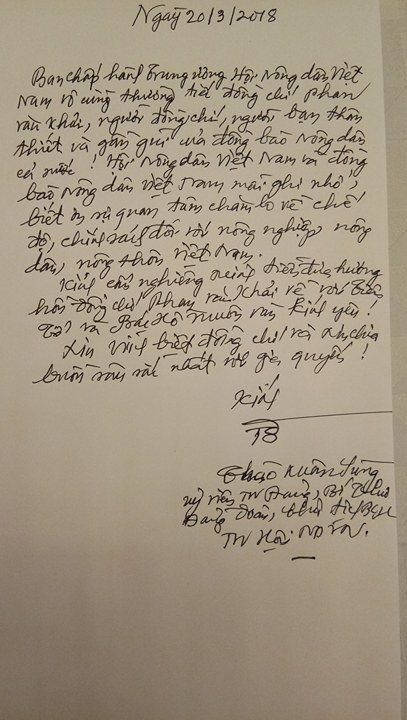 Ngày 20/3/2018
Ban chấp hành Trung ương Hội Nông dân Việt
Nam vô cùng thương tiếc đồng chí Phan
Văn Khải, người đồng chí, người bạn thân
thiết và gần gũi của đồng bào Nông dân
cả nước! Hội Nông dân Việt Nam và đồng
bào Nông dân Việt Nam mãi ghi nhớ,
biết ơn sự quan tâm chăm lo về chế
độ, chính sách đối với nông nghiệp, nông
dân, nông thôn Việt Nam.
Kính cẩn nghiêng mình tiễn đưa hương
hồn đồng chí Phan Văn Khải về với
và Bác Hồ muôn vàn kính yêu!
Xin vĩnh biệt đồng chí và xin chia
buồn sâu sắc nhất với gia quyến!
Kính
TB
Xuân Tùng
Uỷ viên TW Đảng, Bí thư
Đảng đoàn, Chủ tịch BCH
TW Hội NDVN.